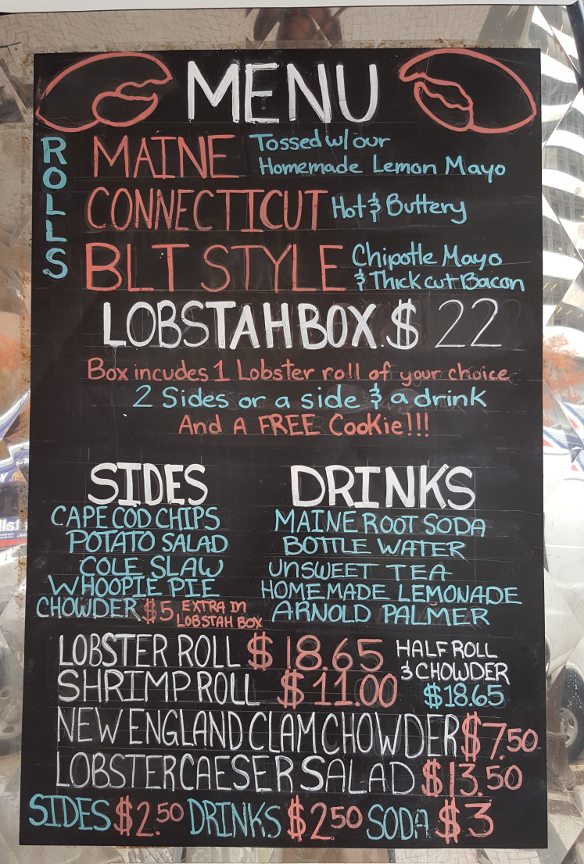 MENU
ROLLS
MAINE Tossed w/ our
Homemade Lemon Mayo
CONNECTICUT Hot & Buttery
BLT STYLE Chipotle Mayo
& Thick cut Bacon
LOBSTAH BOX $22
Box incudes 1 Lobster roll of your choice
2 Sides or a side & a drink
And A FREE Cookie!!!
SIDES
CAPE COD CHIPS
POTATO SALAD
COLE SLAW
WHOOPIE PIE
CHOWDER $5 EXTRA IN
LOBSTAH BOX
DRINKS
MAINE ROOT SODA
BOTTLE WATER
UNSWEET TEA
HOMEMADE LEMONADE
ARNOLD PALMER
LOBSTER ROLL $18.65
SHRIMP ROLL $11.00
HALF ROLL
& CHOWDER
$18.65
NEW ENGLAND CLAM CHOWDER $7.50
LOBSTER CAESER SALAD $13.50
SIDES $2.50 DRINKS $2.50 SODA $3